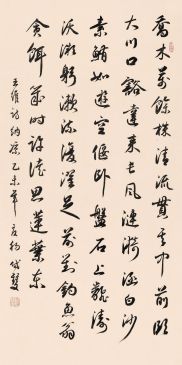 喬木萬餘株清流貫其中前臨
大川口豁達來長風漣漪涵白沙
素鮪如遊空偃臥盤石上翻濤
沃微躬漱流復濯足前對釣魚翁
貪餌凡幾許徒思蓮葉東
王維詩納涼乙未年夏